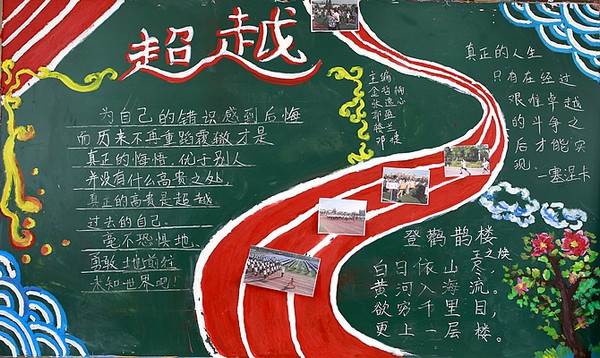 超越
为自己的错识感到后悔
而历来不再重蹈覆辙才是
真正的悔悟.优于别人
并没有什么高贵之处,
真正的高贵是超越
过去的自己.
毫不恐惧地、
勇敢地前往
未知世界吧!
主编
张逸心
郭盈
楼兰
真正的人生
只有在经过
艰难卓越
的斗争之
后才能实
现
—塞涅卡
登鹳鹊楼
王之焕
白日依山尽,
黄河入海流。
欲穷千里目,
更上一层楼。